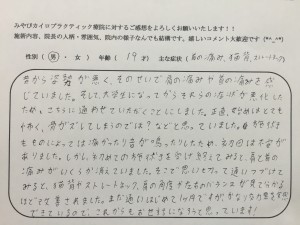 みやびカイロプラクティック療院に対するご感想をよろしくお願いいたします!!
施術内容、院長の人柄・雰囲気、院内の様子なんでも結構です。嬉しいコメント大歓迎です(*^_^*)
性別(男・女) 年齢(19才) 主な症状(首の痛み、猫背、ストレートネック)
昔から姿勢が悪く、そのせいで肩の痛みや首の痛みを感
じていました。そして大学生になってからそれらの痛みが悪化した
ため、こちらに通わせていただくことにしました。正直、始めはとても
骨がズレてしまうのでは?などと思っていました。
ものによっては痛かったり音が鳴ったりしたため、初めは不安が
ありました。しかし、初めての施術を受け終えてみると首と肩の
痛みがいくらか消えていました。そこで思いもって通いつづけて
みると、猫背やストレートネック、肩の角度が左右のバランスが見て分かる
ほどで改善されました。まだ通いはじめて1ヶ月ですが、かなりの効果を実感
できているので、これからもお世話になろうと思っています!